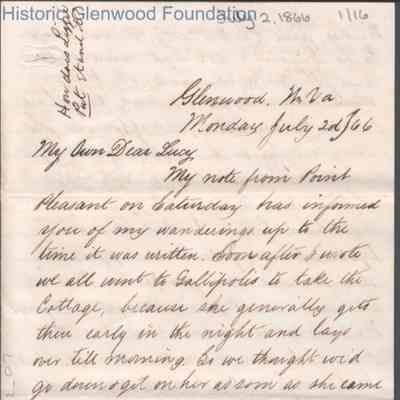 Historic Glenwood Foundation
July 2, 1866
1/16
How does
Pat stand
Glenwood. W. Va
Monday July 2d/66
My Own Dear Lucy
My note from Point
Pleasant on Saturday has informed
you of my wanderings up to the
time it was written. Soon after I wrote
we all went to Gallipolis to take the
Cottage, because she generally gets
there early in the night and lays
over till morning. So we thought we'd
go down & get on her as soon as she came